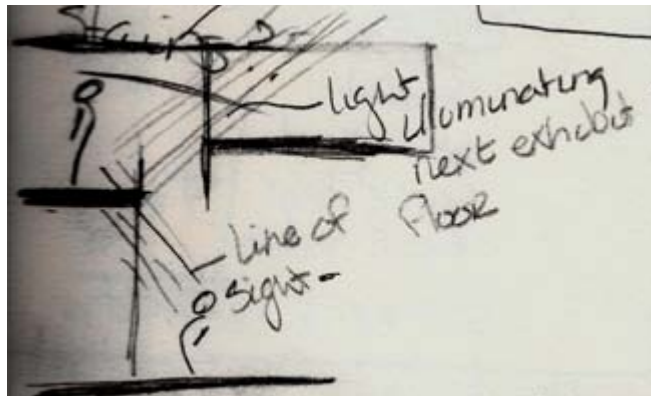 light
illuminating
next exhibit
floor
line of
sight-